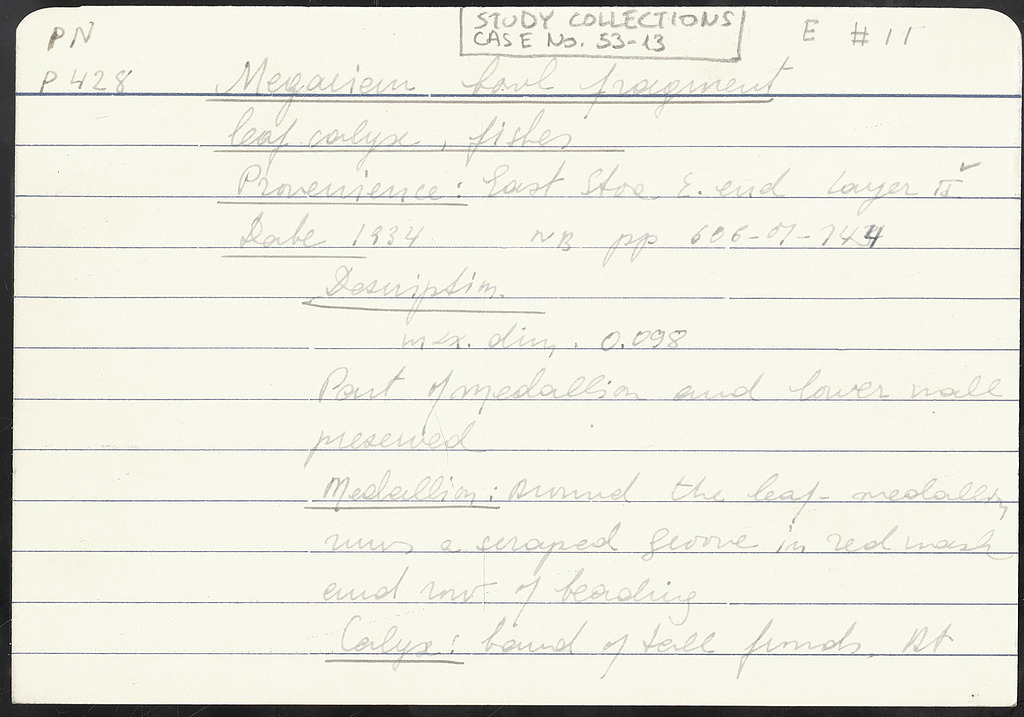 STUDY COLLECTIONS
CASE No. 53-13
E #11
PN
P 428
Megarian bowl fragment
leaf calyx, fishes
Provenience: East Stoa E. end Layer II
Date 1934 NB pp 606-07-744
Description.
max. dim. 0.098
Part of medallion and lower wall
preserved
Medallion: Around the leaf-medallion
runs a scraped groove in red wash
and row of beading
Calyx: band of tall fronds. At